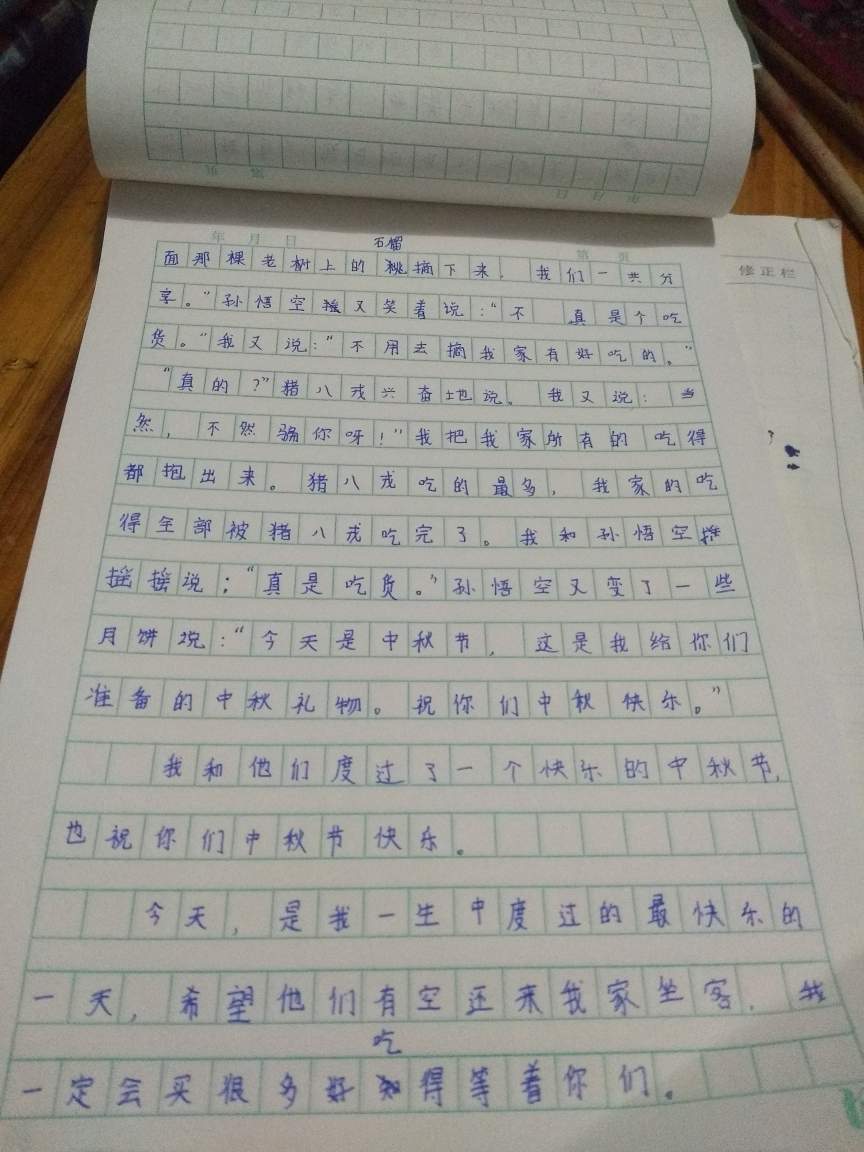 年 月 日
第 页
修正栏
石榴
面那棵老树上的桃摘下来,我们一共分
享。"孙悟空摇又笑着说:"不 真是个吃
货。"我又说:"不用去摘我家有好吃的。"
"真的?"猪八戒兴奋地说。我又说:当
然,不然骗你呀!"我把我家所有的吃得
都抱出来。猪八戒吃的最多,我家的吃
得全部被猪八戒吃完了。我和孙悟空摇
摇摇说;"真是吃货。"孙悟空又变了一些
月饼说:"今天是中秋节,这是我给你们
准备的中秋礼物。祝你们中秋快乐。"
我和他们度过了一个快乐的中秋节,
也祝你们中秋节快乐。
今天,是我一生中度过的最快乐的
一天,希望他们有空还来我家坐客.我
吃
一定会买很多好得等着你们。